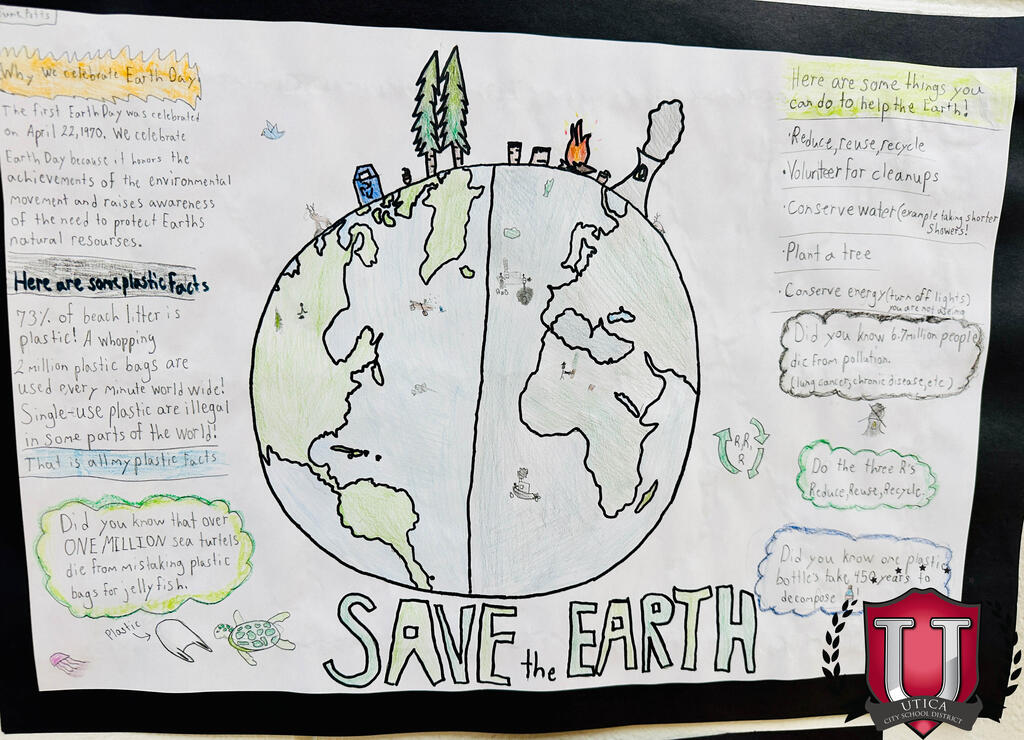 Why we celebrate Earth Day
The first Earth Day was celebrated
on April 22, 1970. We celebrate
Earth Day because it honors the
achievements of the environmental
movement and raises awareness
of the need to protect Earths
natural resourses.
Here are some plastic facts
73% of beach litter is
plastic! A whopping
2 million plastic bags are
used every minute world wide!
Single-use plastic are illegal
in some parts of the world!
That is all my plastic facts
Did you know that over
ONE MILLION sea turtels
die from mistaking plastic
bags for jelly fish.
Plastic
SAVE the EARTH
Here are some things you
can do to help the Earth!
·Reduce, reuse, recycle
·Volunteer for cleanups
·Conserve water (example taking shorter
showers!
·Plant a tree
·Conserve energy (turn off lights)
you are not useing
Did you know 6.7 million people
die from pollution.
(lung cancer, chronic disease, etc)
R, R,
R
Do the three R's
Reduce, Reuse, Recycle.
Did you know one plastic
bottle's take 450 years to
decompose !
U
UTICA
CITY SCHOOL DISTRICT